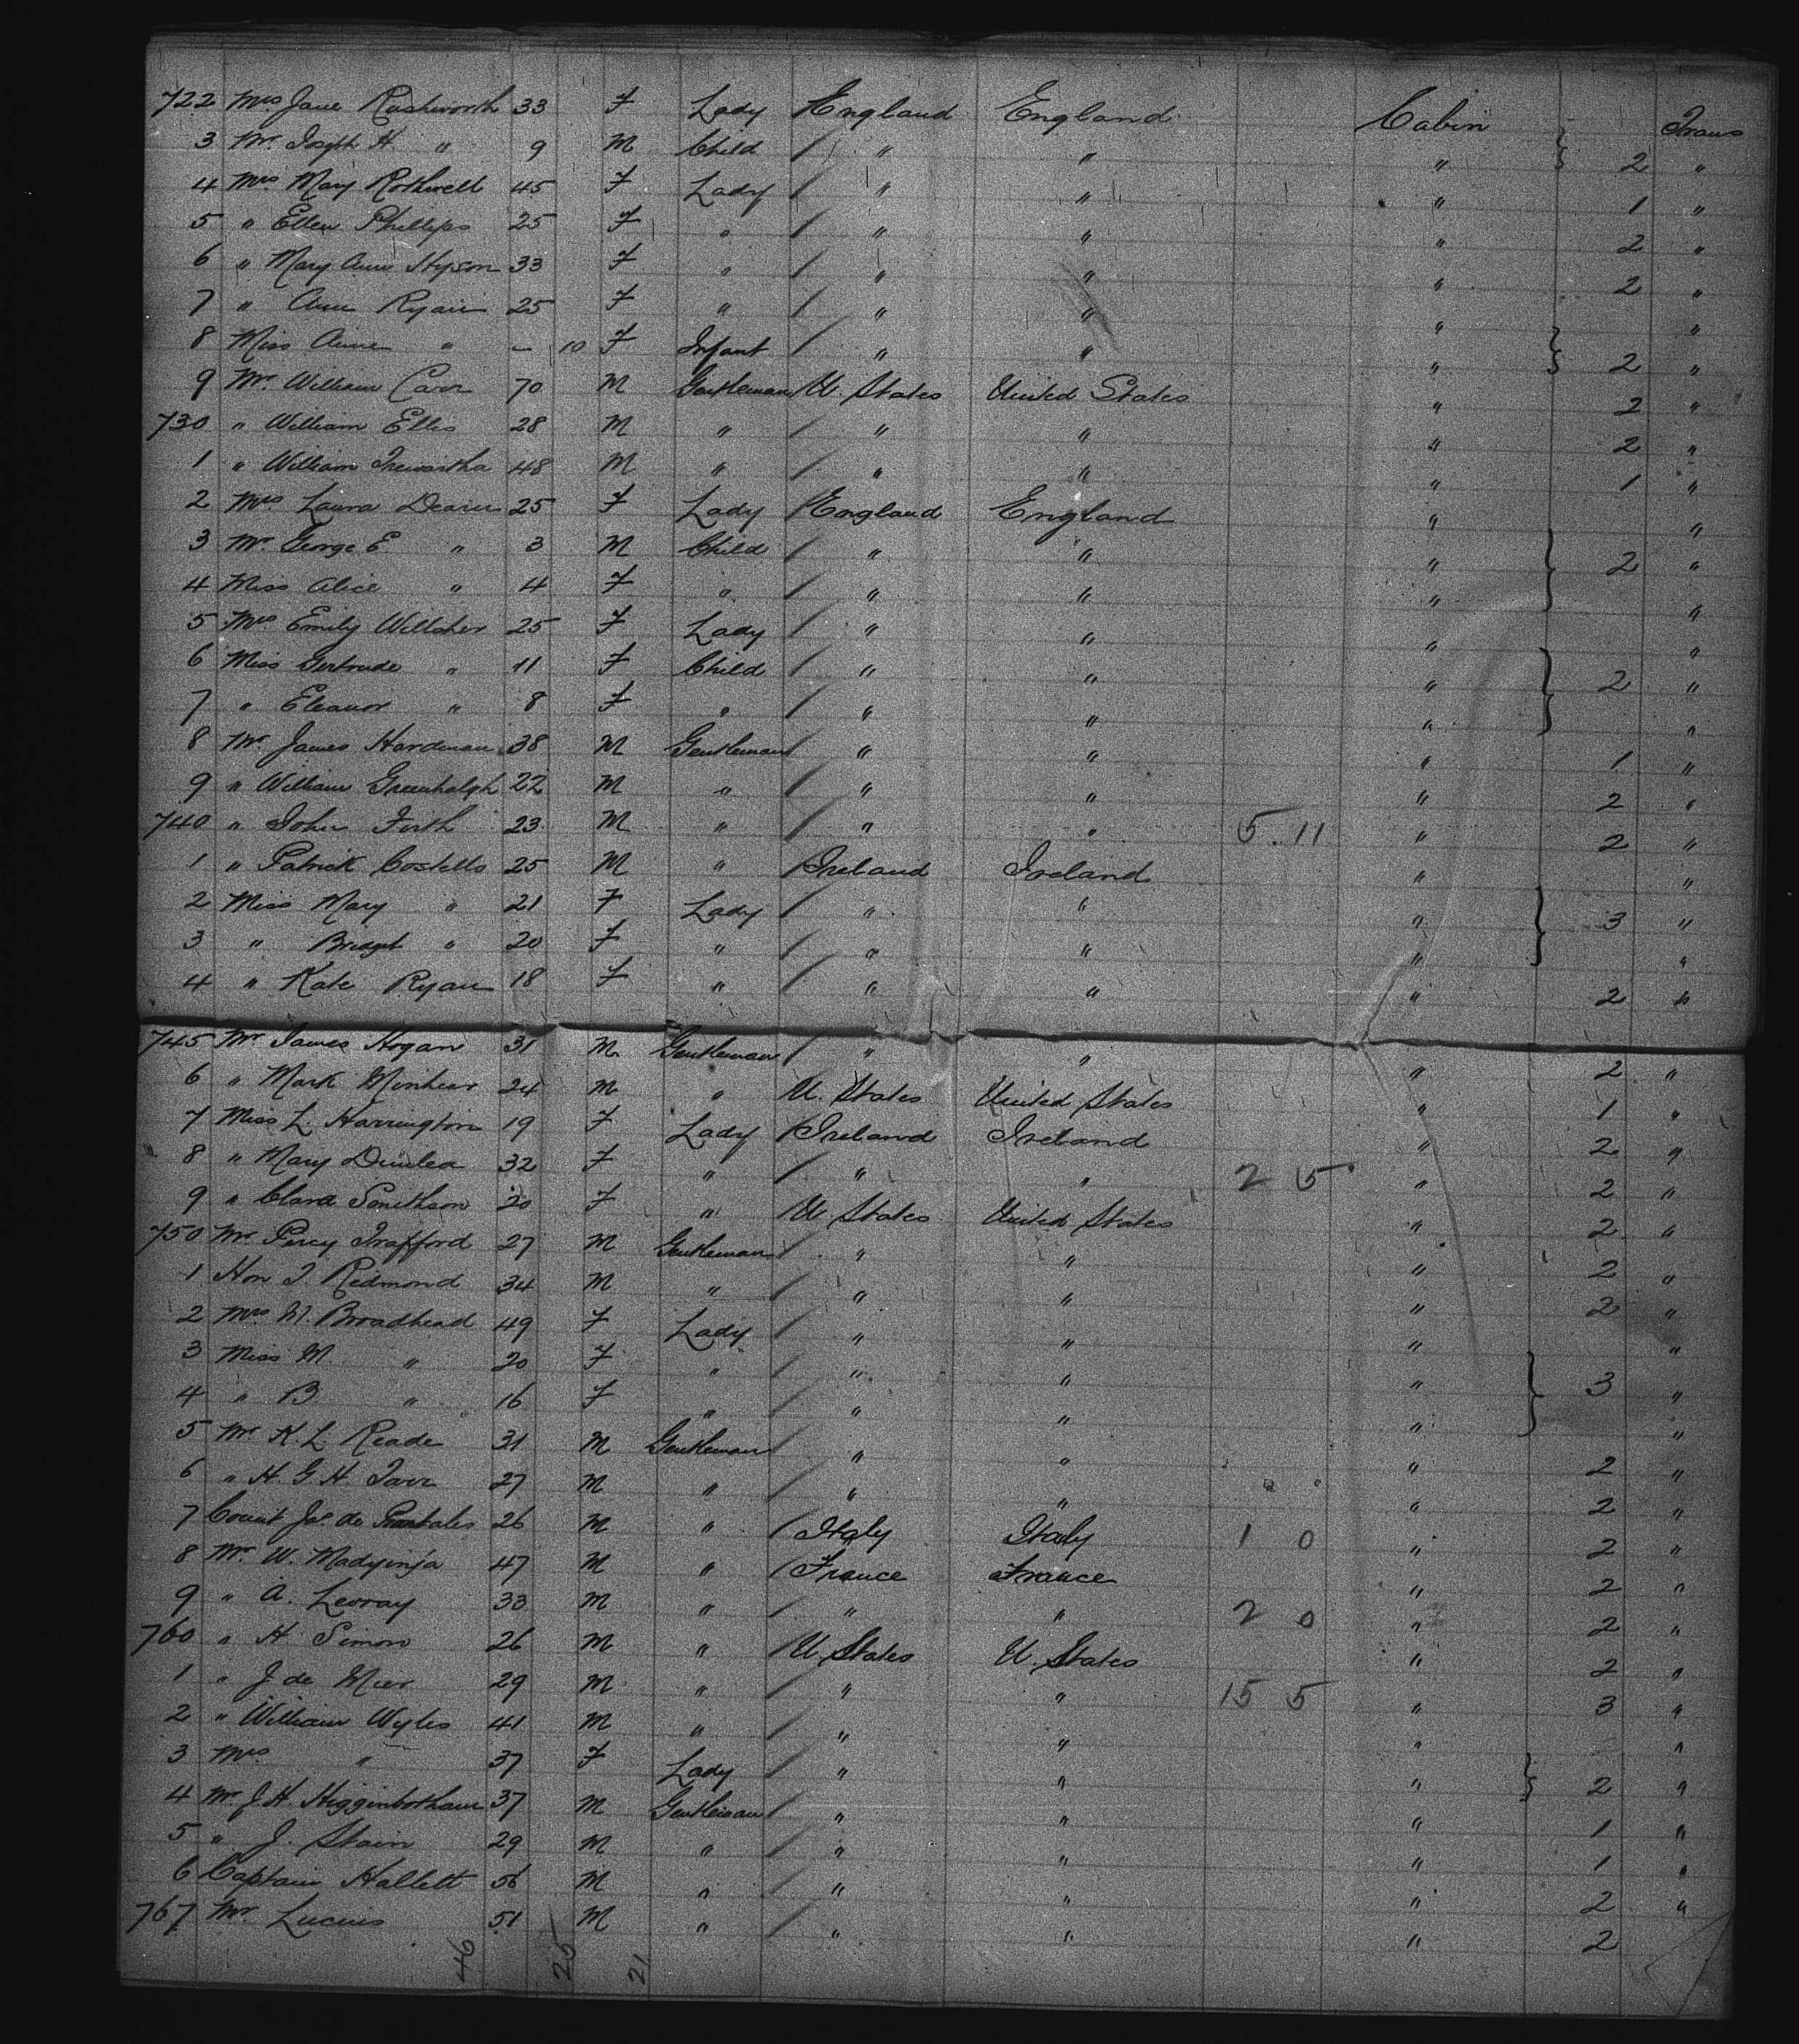 722 Mrs Jane Rushworth 33 F Lady England England Cabin Trans
3 Mr. Joseph H. " 9 M Child / " " " 2 "
4 Mrs Mary Rothwell 45 F Lady / " " " 1 "
5 " Ellen Phillips 25 F " / " " " 2 "
6 " Mary Ann Hyson 33 F " / " " " 2 "
7 " Ann Ryan 25 F " / " " " "
8 Miss Annie " - 10 F Infant / " " " 2 "
9 Mr. William Carr 70 M Gentleman U. States United States " 2 "
730 " William Ellis 28 M " / " " " 2 "
1 " William Trewartha 48 M " / " " " 1 "
2 Mrs Laura 25 F Lady England England " "
3 Mr. George E " 3 M Child / " " " 2 "
4 Miss Alice " 4 F " / " " " "
5 Mrs Emily Willsher 25 F Lady / " " " "
6 Miss Gertrude " 11 F Child / " " " 2 "
7 " Eleanor " 8 F " / " " " "
8 Mr. James Hardman 38 M Gentleman / " " " 1 "
9 " William Greenhalgh 22 M " / " " " 2 "
740 " John Firth 23 M " / " " 5 11 " 2 "
1 " Patrick Costello 25 M " Ireland Ireland " "
2 Miss Mary " 21 F Lady / " " " 3 "
3 " Bridget " 20 F " / " " " "
4 " Kate Ryan 18 F " / " " " 2 "
745 Mr. James Hogan 31 M Gentleman / " " " 2 "
6 " Mark Minhear 24 M " U. States United States " 1 "
7 Miss L. Harrington 19 F Lady Ireland Ireland " 2 "
8 " Mary Dunlea 32 F " / " " 2 5 " 2 "
9 " Clara Smithson 20 F " U. States United States " 2 "
750 Mr. Percy Trafford 27 M Gentleman / " " " 2 "
1 Hon J. Redmond 34 M " / " " " 2 "
2 Mrs M. Broadhead 49 F Lady / " " " "
3 Miss M. " 20 F " / " " " 3 "
4 " B. " 16 F " / " " " "
5 Mr K. L. Reade 31 M Gentleman / " " " 2 "
6 " H. G. H. Tarr 27 M " / " " " 2 "
7 Count Jas. de 26 M " / Italy Italy 1 0 " 2 "
8 Mr. W. 47 M " / France France " 2 "
9 " A. Levray 33 M " / " " 2 0 " 2 "
760 " H. Simon 26 M " / U. States U. States " 2 "
1 " J de Mier 29 M " / " " 15 5 " 3 "
2 " William Wyles 41 M " / " " " "
3 Mrs " 37 F Lady / " " " 2 "
4 Mr. J. H. Higginbotham 37 M Gentleman / " " " 1 "
5 " J. Stain 29 M " / " " " 1 "
6 Captain Hallett 56 M " / " " " 2 "
767 Mr. Lucius 51 M " / " " " 2
46 25 21